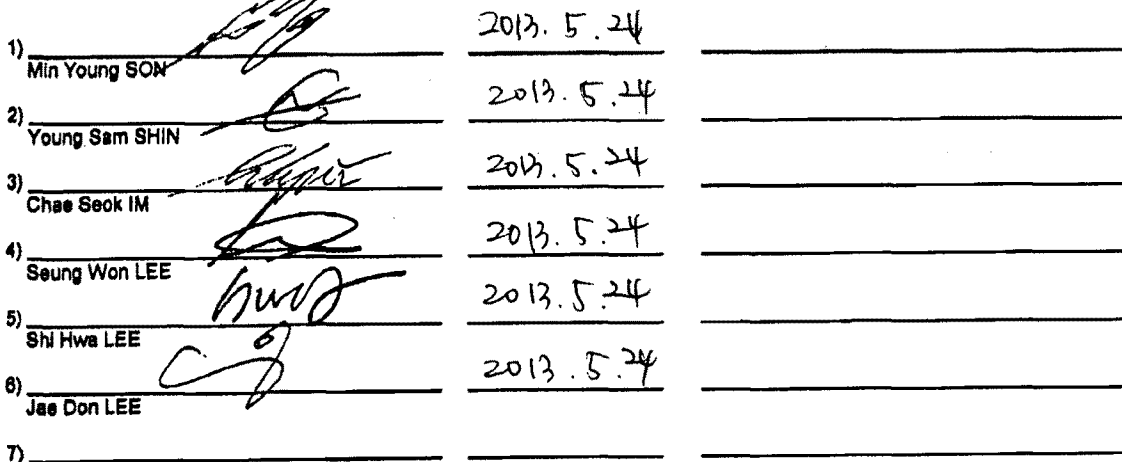 1) 2013. 5. 24
Min Young SON
2) 2013. 5. 24
Young Sam SHIN
3) 2013. 5. 24
Chae Seok IM
4) 2013. 5. 24
Seung Won LEE
5) 2013. 5. 24
Shi Hwa LEE
6) 2013. 5. 24
Jae Don LEE
7)